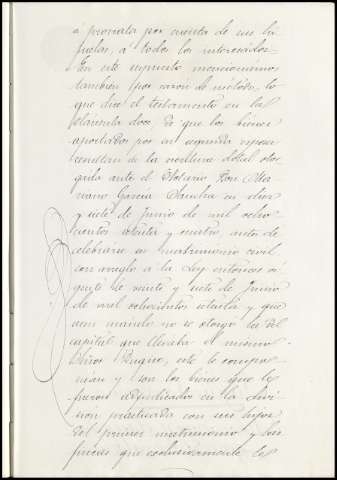 á prorrata por cuenta de sus hi-
juelas, á todos los interesados.
En este supuesto mencionaremos
tambien por razón de método, lo
que dice el testamento en la
cláusula doce de que los bienes
aportados por su segunda esposa
resultan de la escritura dotal otor-
gada ante el Notario Don Ma-
riano García Sancha en diez
y siete de Junio de mil ocho-
cientos setenta y cuatro, antes de
celebrarse su matrimonio civil
con arreglo a la Ley entonces vi-
gente de veinte y siete de Junio
de mil ochocientos setenta y que
aun cuando no se otorgó la del
capital que llevaba el mismo
Señor Duque, este le compo-
nian y son los bienes que le
fueron adjudicados en la divi-
sion practicada con sus hijos
del primer matrimonio y los
que exclusivamente le